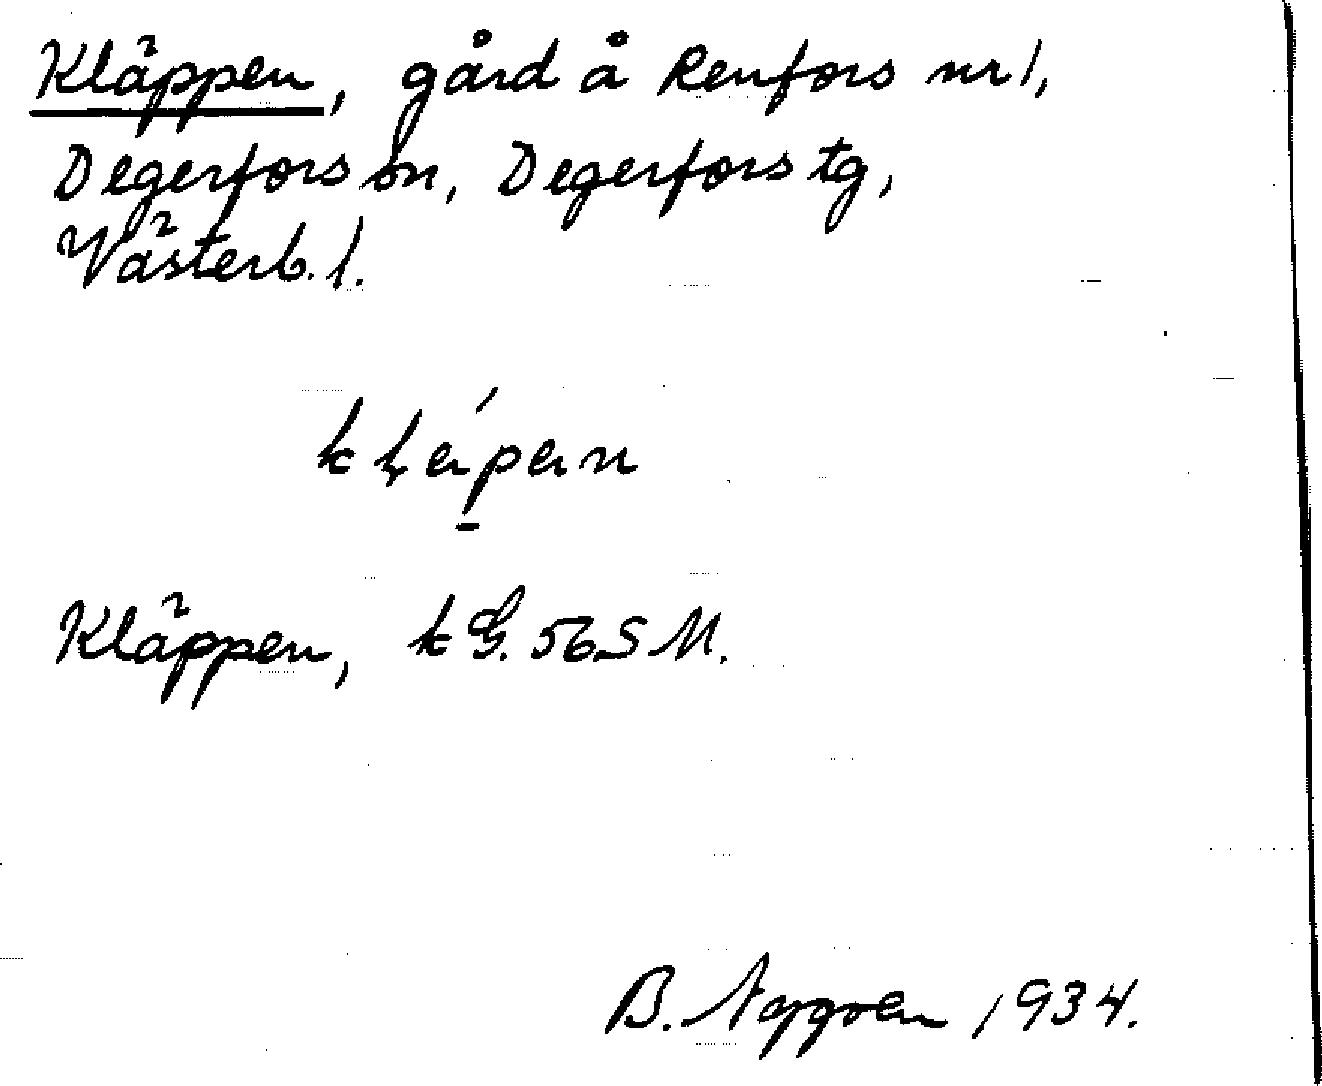 Kläppen, gård å Renfors nr 1,
Degerfors sn, Degerfors tg,
Västerb. l.
Kläppen, k G. 56 S M.
B. 1934.